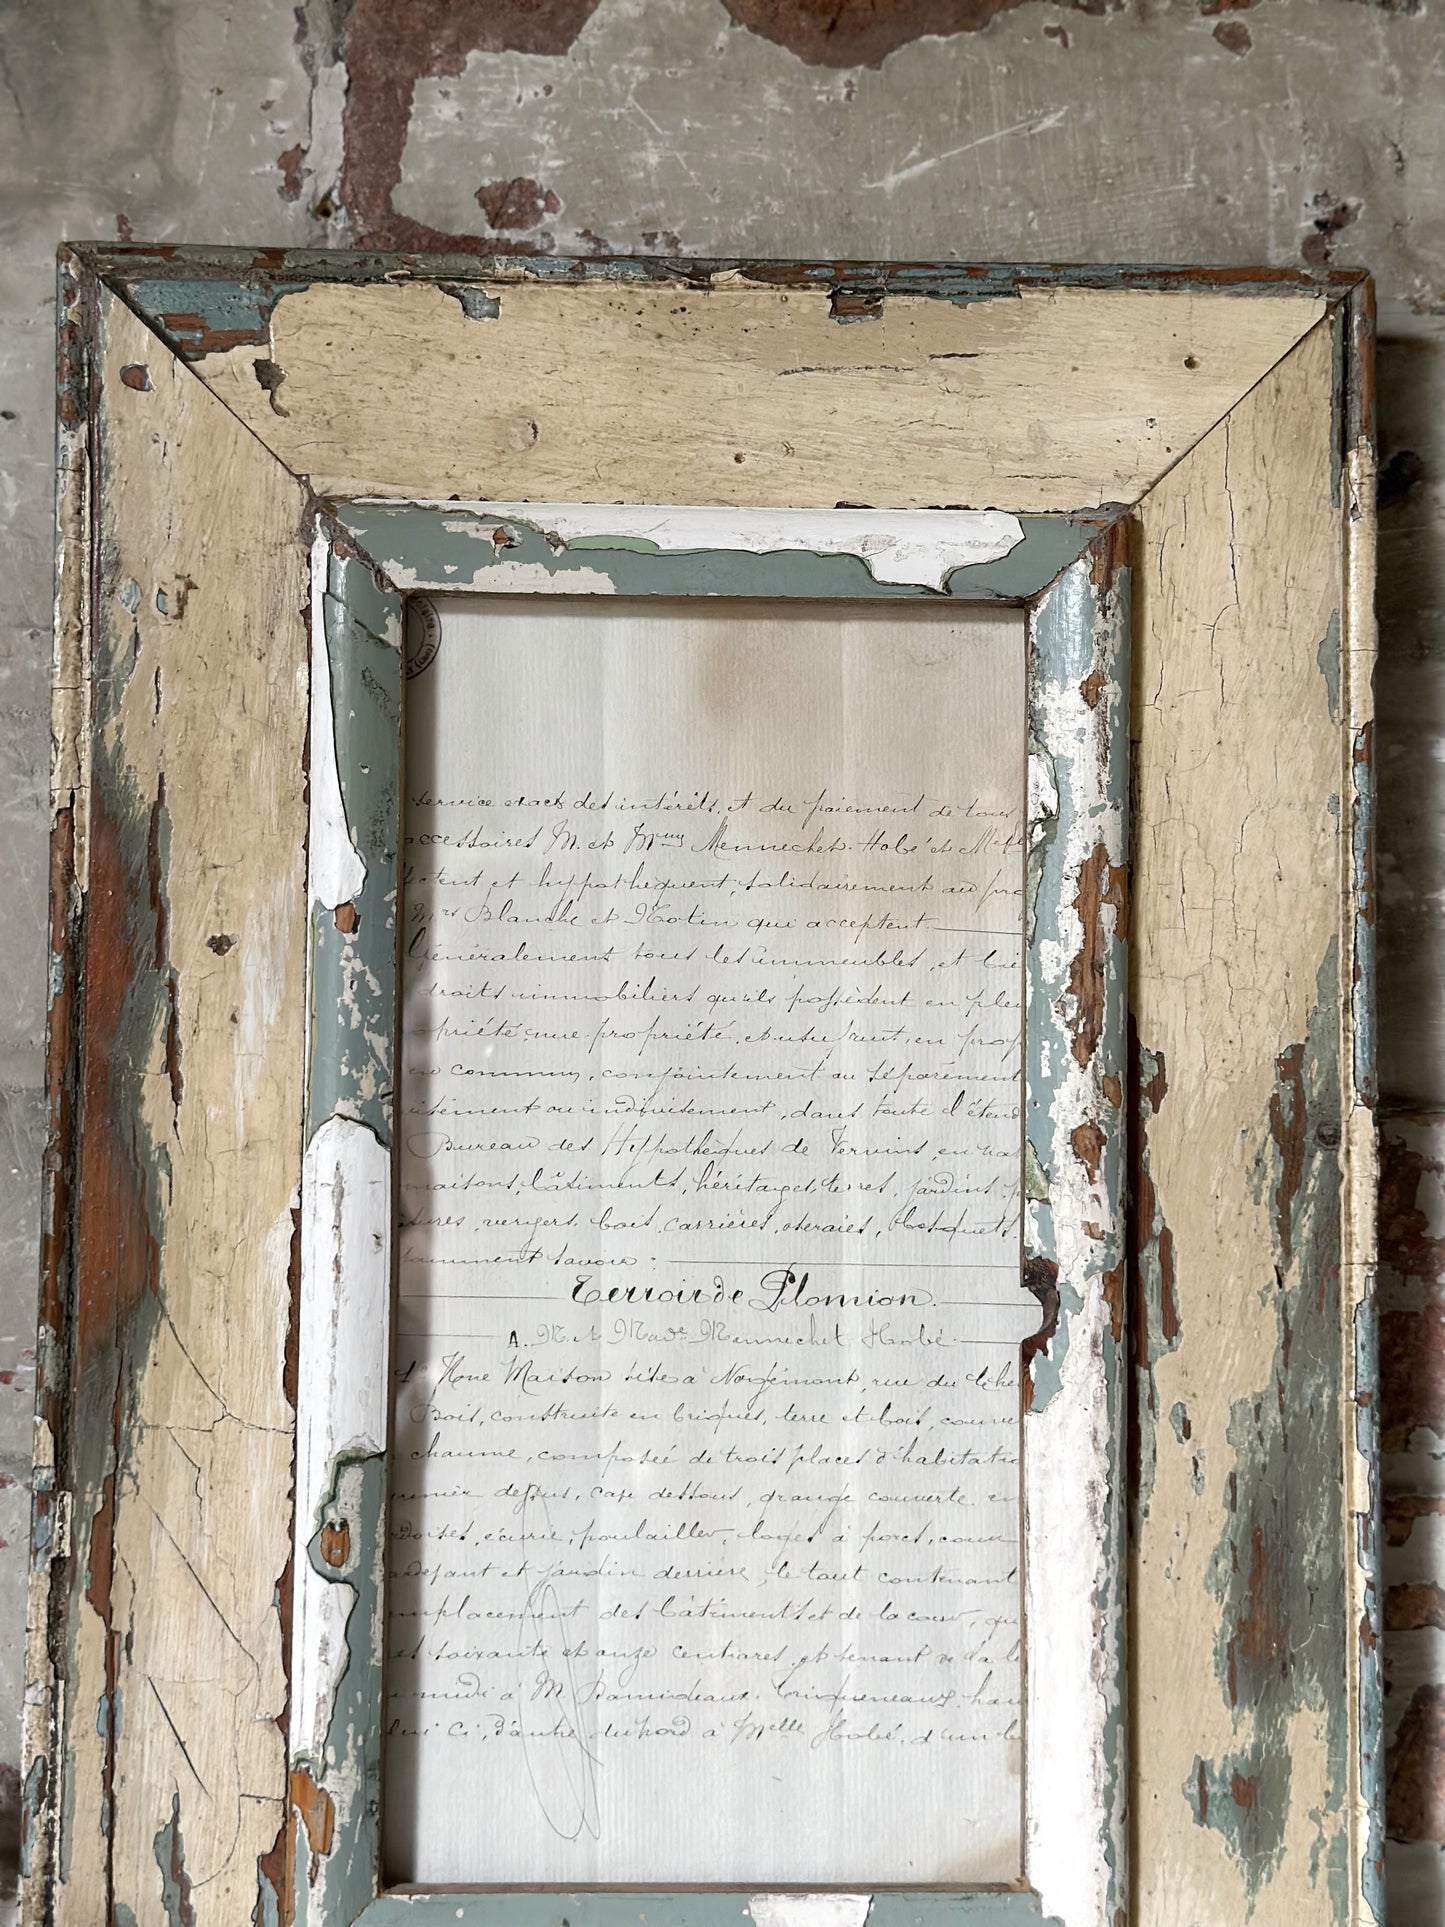 service exact des intérêts et du paiement de tous
accessoires M. et Mme Mennechet-Hobé et Melle
fectent et hypothèquent, solidairement au pro
Mrs Blanche et Notin qui acceptent.
Généralement tous les immeubles, et bie
droits immobiliers qu'ils possèdent en plei
opriété, nue-propriété, et usufruit, en prop
en commun, conjointement ou séparément
isément ou indivisément, dans toute l'étend
Bureau des Hypothèques de Vervins, en nat
maisons, bâtiments, héritages, terres, jardins, p
atures, vergers, bois, carrières, oseraies, bosquets,
tamment savoir :
Terroir de Plomion.
A. M. et Made Mennechet Hobé.
1° Une Maison sise à
Bois, construite en briques, terre et bois, couve
chaume, composée de trois places d'habitatio
grenier dessus, cave dessous, grange couverte en
rdoises, écurie, poulailler, loges à porcs, cour
devant et jardin derrière, le tout contenant
emplacement des bâtiments et de la cour, qu
es soixante et onze centiares, et tenant
midi à M.
lui ci, d'autre du nord à Melle Hobé, d'un b